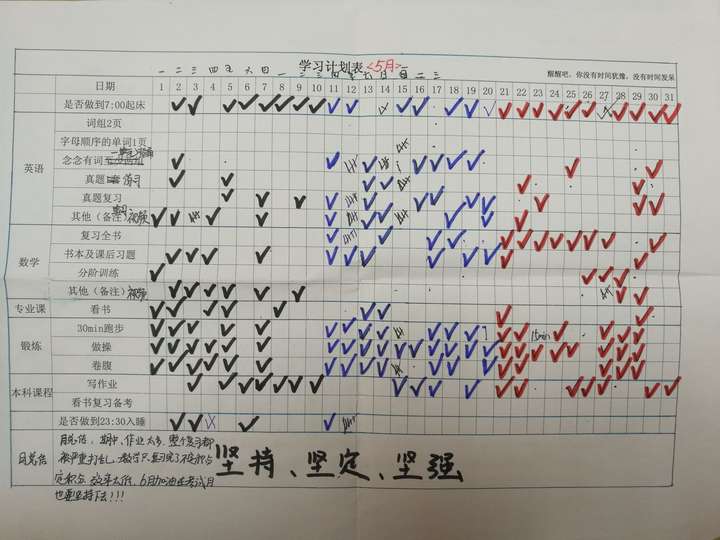 学习计划表<5月>
醒醒吧，你没有时间犹豫，没有时间发呆
日期 1 2 3 4 5 6 7 8 9 10 11 12 13 14 15 16 17 18 19 20 21 22 23 24 25 26 27 28 29 30 31
是否做到7:00起床
英语
词组2页
字母顺序的单词1页
念念有词
真题 复习
真题复习
其他（备注）视频
数学
复习全书
书本及课后习题
分阶训练
其他（备注）视频
专业课 看书
锻炼
30min跑步 15min
做操
卷腹
本科课程
写作业
看书复习备考
是否做到23:30入睡
月总结
月总结：期中、作业太多，整个复习都
被严重打乱，数学只复习完了不定积分
定积分，效率太低，6月加油还考试月
也要坚持下去!!!
坚持、坚定、坚强